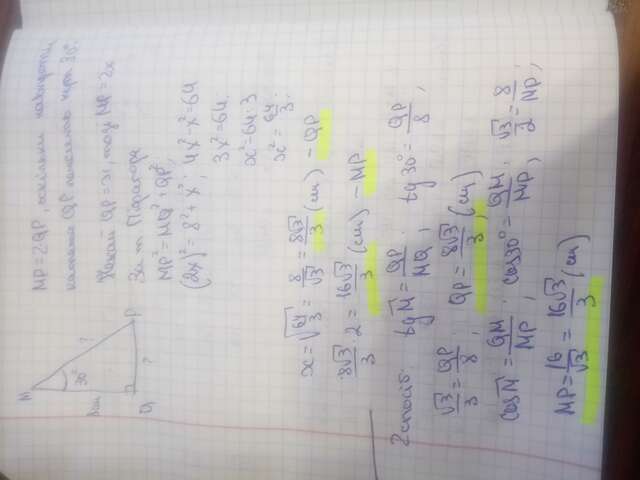 MP = 2QP, оскільки навпроти
катета QP лежить кут 30°.
Нехай QP = x, тоді MP = 2x
За т. Піфагора
MP² = MQ² + QP²;
(2x)² = 8² + x²; 4x² - x² = 64
3x² = 64;
x² = 64 : 3
x² = 64/3;
M
30°
?
8см
Q
?
P
x = √(64/3) = 8/√3 = 8√3/3 (см) - QP
8√3/3 · 2 = 16√3/3 (см) - MP
2 спосіб. tg M = QP/MQ, tg 30° = QP/8,
√3/3 = QP/8, QP = 8√3/3 (см)
cos M = QM/MP, cos 30° = QM/MP, √3/2 = 8/MP,
MP = 16/√3 = 16√3/3 (см)